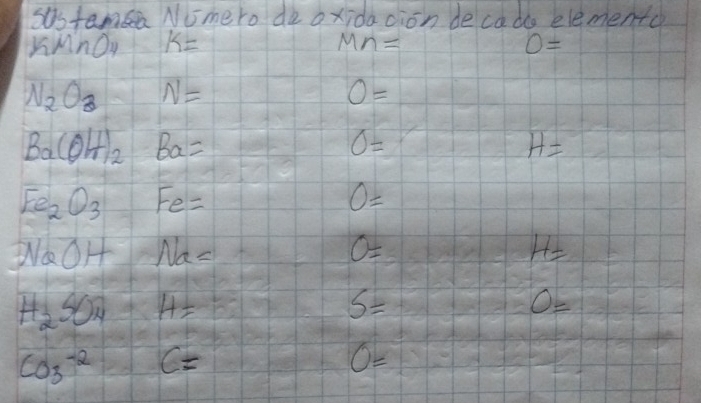 Sustansa Número de oxidación de cada elemento
KMnO₄ K= Mn= O=
N₂O₃ N= O=
Ba(OH)₂ Ba= O= H=
Fe₂O₃ Fe= O=
NaOH Na= O= H=
H₂SO₄ H= S= O=
CO₃⁻² C= O=